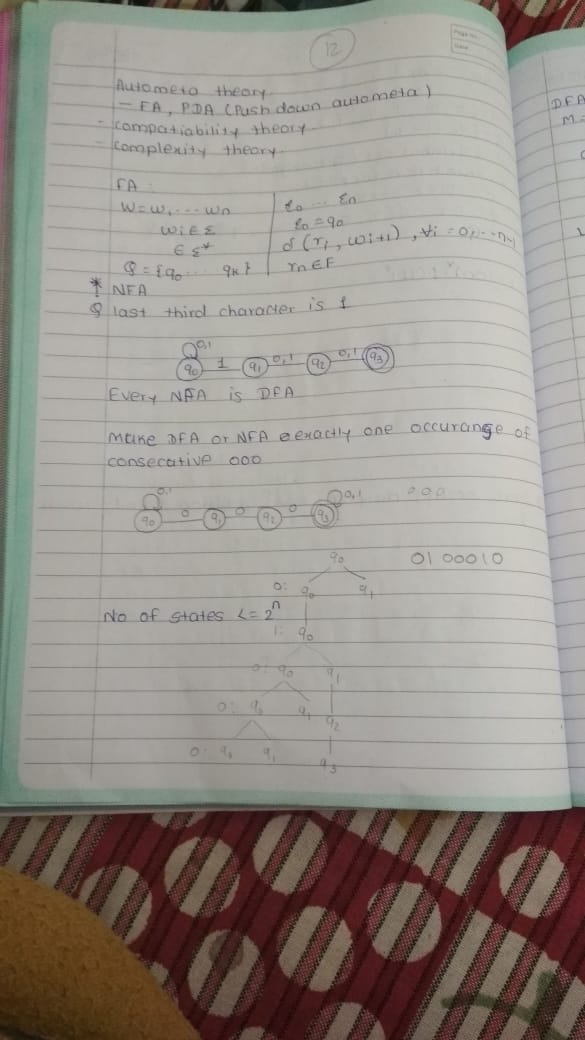 12
Page No.
Date
Autometa theory.
- FA, PDA (Push down autometa)
- compatiability theory.
- complexity theory.
FA:
W = w1 ... wn
wi ∈ Σ
∈ Σ*
Q = {q0 ... qk}
r0 ... rn
r0 = q0
δ(ri, wi+1), ∀i = 0, ... n-1
rn ∈ F
* NFA
Q last third character is 1
0,1
q0 1 q1 0,1 q2 0,1 q3
Every NFA is DFA
Make DFA or NFA exactly one occurange of
consecative 000
0,1 0,1 000
q0 0 q1 0 q2 0 q3
q0 0100010
0: q0 q1
No of states <= 2^n
1: q0
0: q0 q1
0: q0 q1 q2
0: q0 q1 q3
DFA
M =